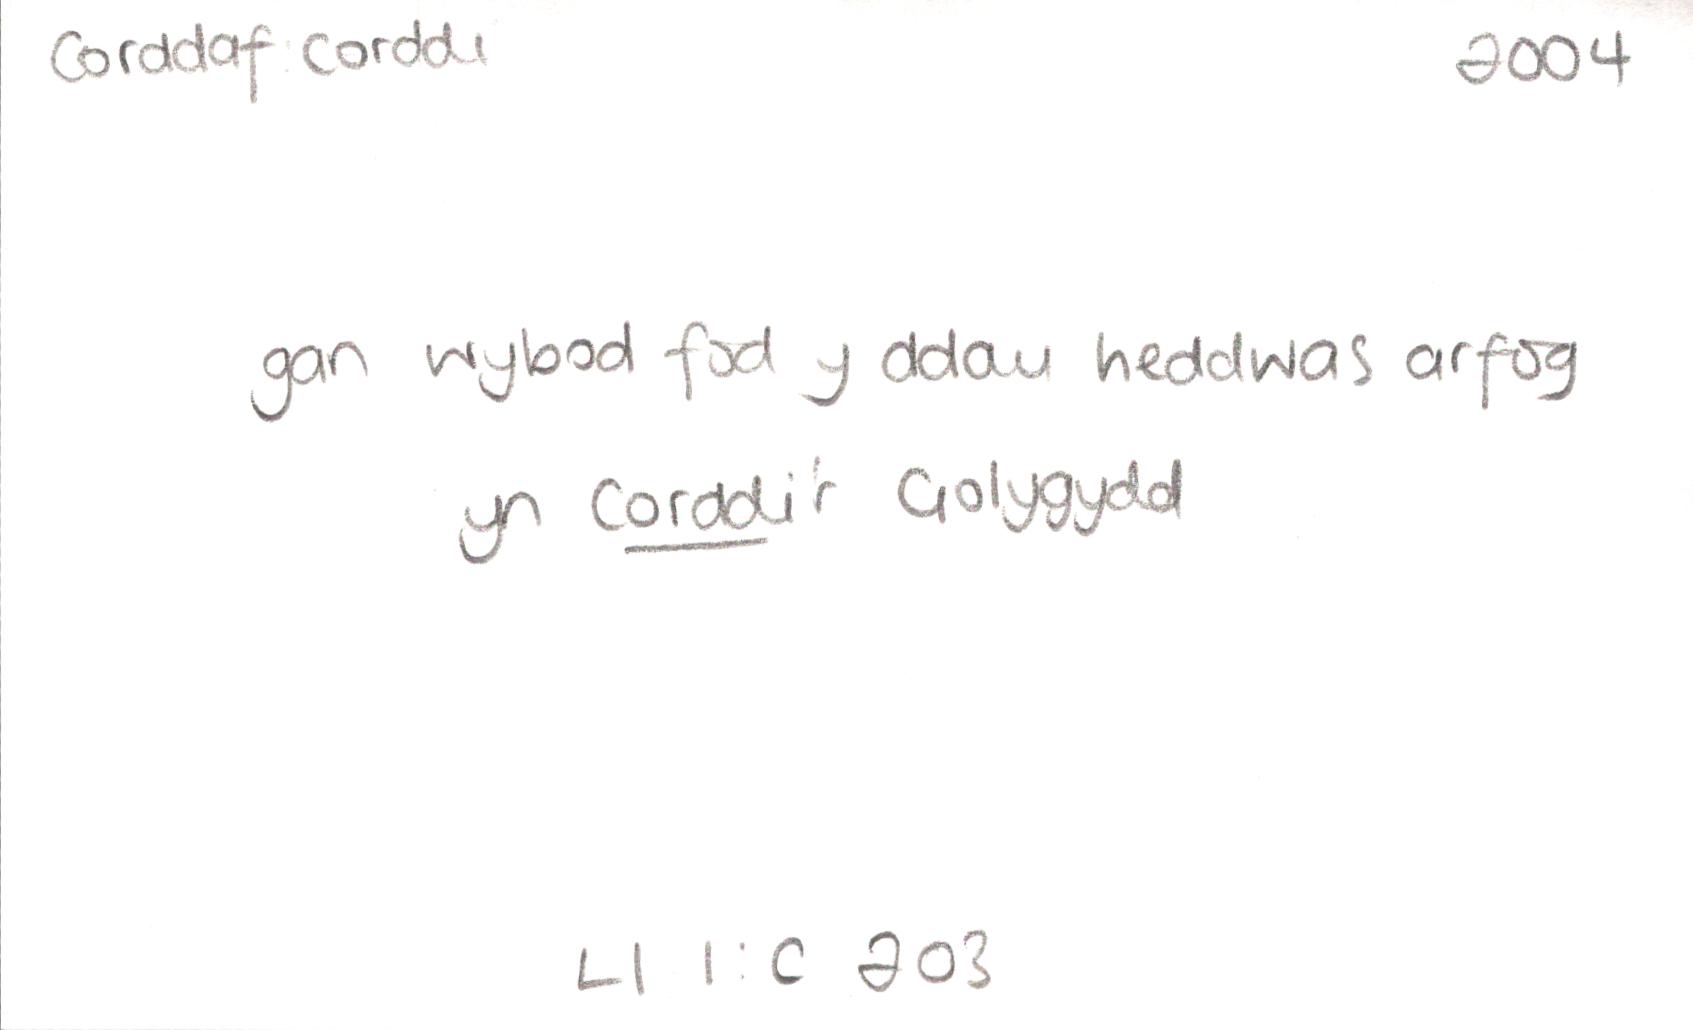 Corddaf: Corddi 2004
gan wybod fod y ddau heddwas arfog
yn Corddi'r Golygydd
Ll 1:C 203